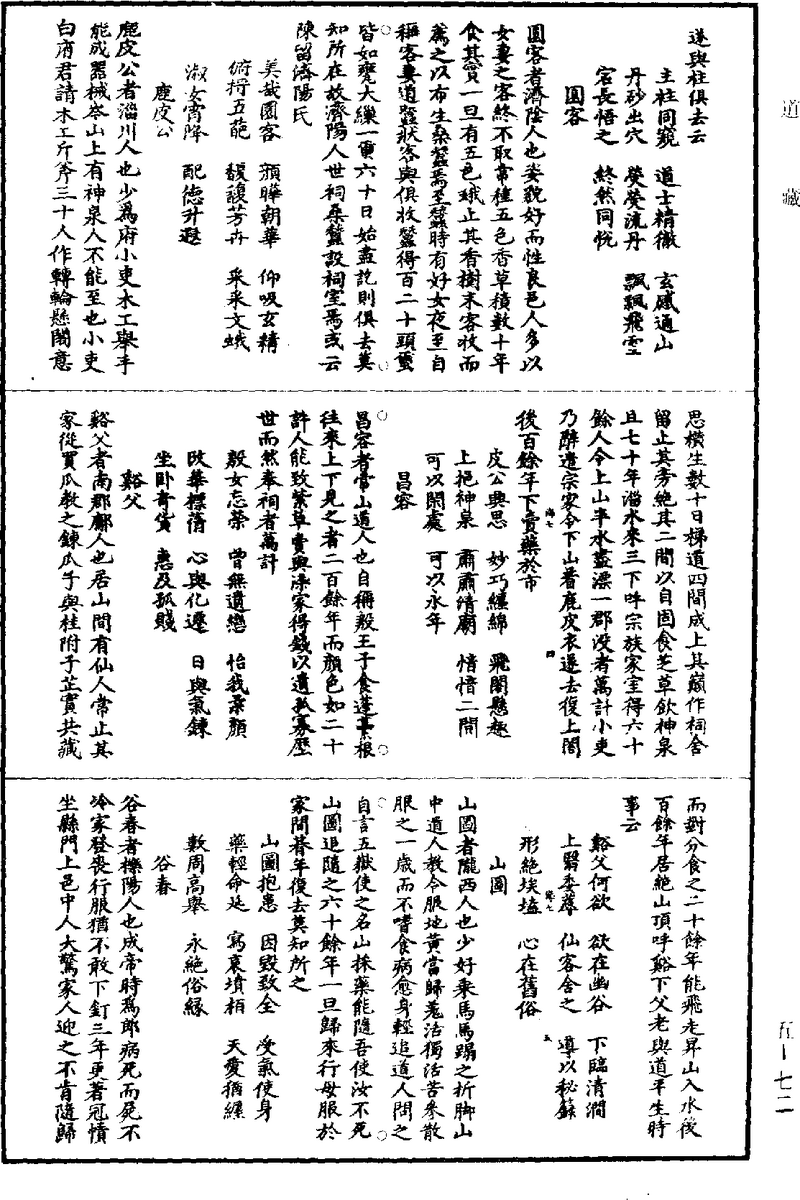 道藏
五－七二
遂與柱俱去云
主柱同窺　道士精徹　玄感通山
丹砂出穴　熒熒流丹　飄飄飛雪
宕長悟之　終然同悅
園客
園客者濟陰人也姿貌好而性良邑人多以
女妻之客終不取常種五色香草積數十年
食其實一旦有五色蛾止其香樹末客收而
薦之以布生桑蠶焉至蠶時有好女夜至自
稱客妻道蠶狀客與俱收蠶得百二十頭蠒
皆如甕大繅一蠒六十日始盡訖則俱去莫
知所在故濟陽人世祠桑蠶設祠室焉或云
陳留濟陽氏
美哉園客　顏曄朝華　仰吸玄精
俯捋五葩　馥馥芳卉　采采文蛾
淑女宵降　配德升遐
鹿皮公
鹿皮公者淄川人也少為府小吏木工舉手
能成器械岑山上有神泉人不能至也小吏
白府君請木工斤斧三十人作轉輪懸閣意
思橫生數十日梯道四間成上其巔作祠舍
留止其旁絕其二間以自固食芝草飲神泉
且七十年淄水來三下呼宗族家室得六十
餘人令上山半水盡漂一郡沒者萬計小吏
乃辭遣宗家令下山著鹿皮衣遂去復上閣
後百餘年下賣藥於市
皮公興思　妙巧纏綿　飛閣懸趣
上挹神泉　肅肅清廟　愔愔二間
可以閑處　可以永年
昌容
昌容者常山道人也自稱殷王子食蓬虆根
往來上下見之者二百餘年而顏色如二十
許人能致紫草賣與染家得錢以遺孤寡歷
世而然奉祠者萬計
殷女忘榮　曾無遺戀　怡我柔顏
改華標蒨　心與化遷　日與氣鍊
坐臥奇貨　惠及孤賤
谿父
谿父者南郡鄘人也居山間有仙人常止其
家從買瓜教之鍊瓜子與桂附子芷實共藏
而對分食之二十餘年能飛走昇山入水後
百餘年居絕山頂呼谿下父老與道平生時
事云
谿父何欲　欲在幽谷　下臨清澗
上翳委蓐　仙客舍之　導以秘籙
形絕埃𡏖　心在舊俗
山圖
山圖者隴西人也少好乘馬馬蹋之折脚山
中道人教令服地黃當歸羌活獨活苦參散
服之一歲而不嗜食病愈身輕追道人問之
自言五嶽使之名山採藥能隨吾使汝不死
山圖追隨之六十餘年一旦歸來行母服於
家間朞年復去莫知所之
山圖抱患　因毀致全　受氣使身
藥輕命延　寫哀墳栢　天愛猶纏
數周高舉　永絕俗緣
谷春
谷春者櫟陽人也成帝時為郎病死而屍不
冷家發喪行服猶不敢下釘三年更著冠幘
坐縣門上邑中人大驚家人迎之不肯隨歸